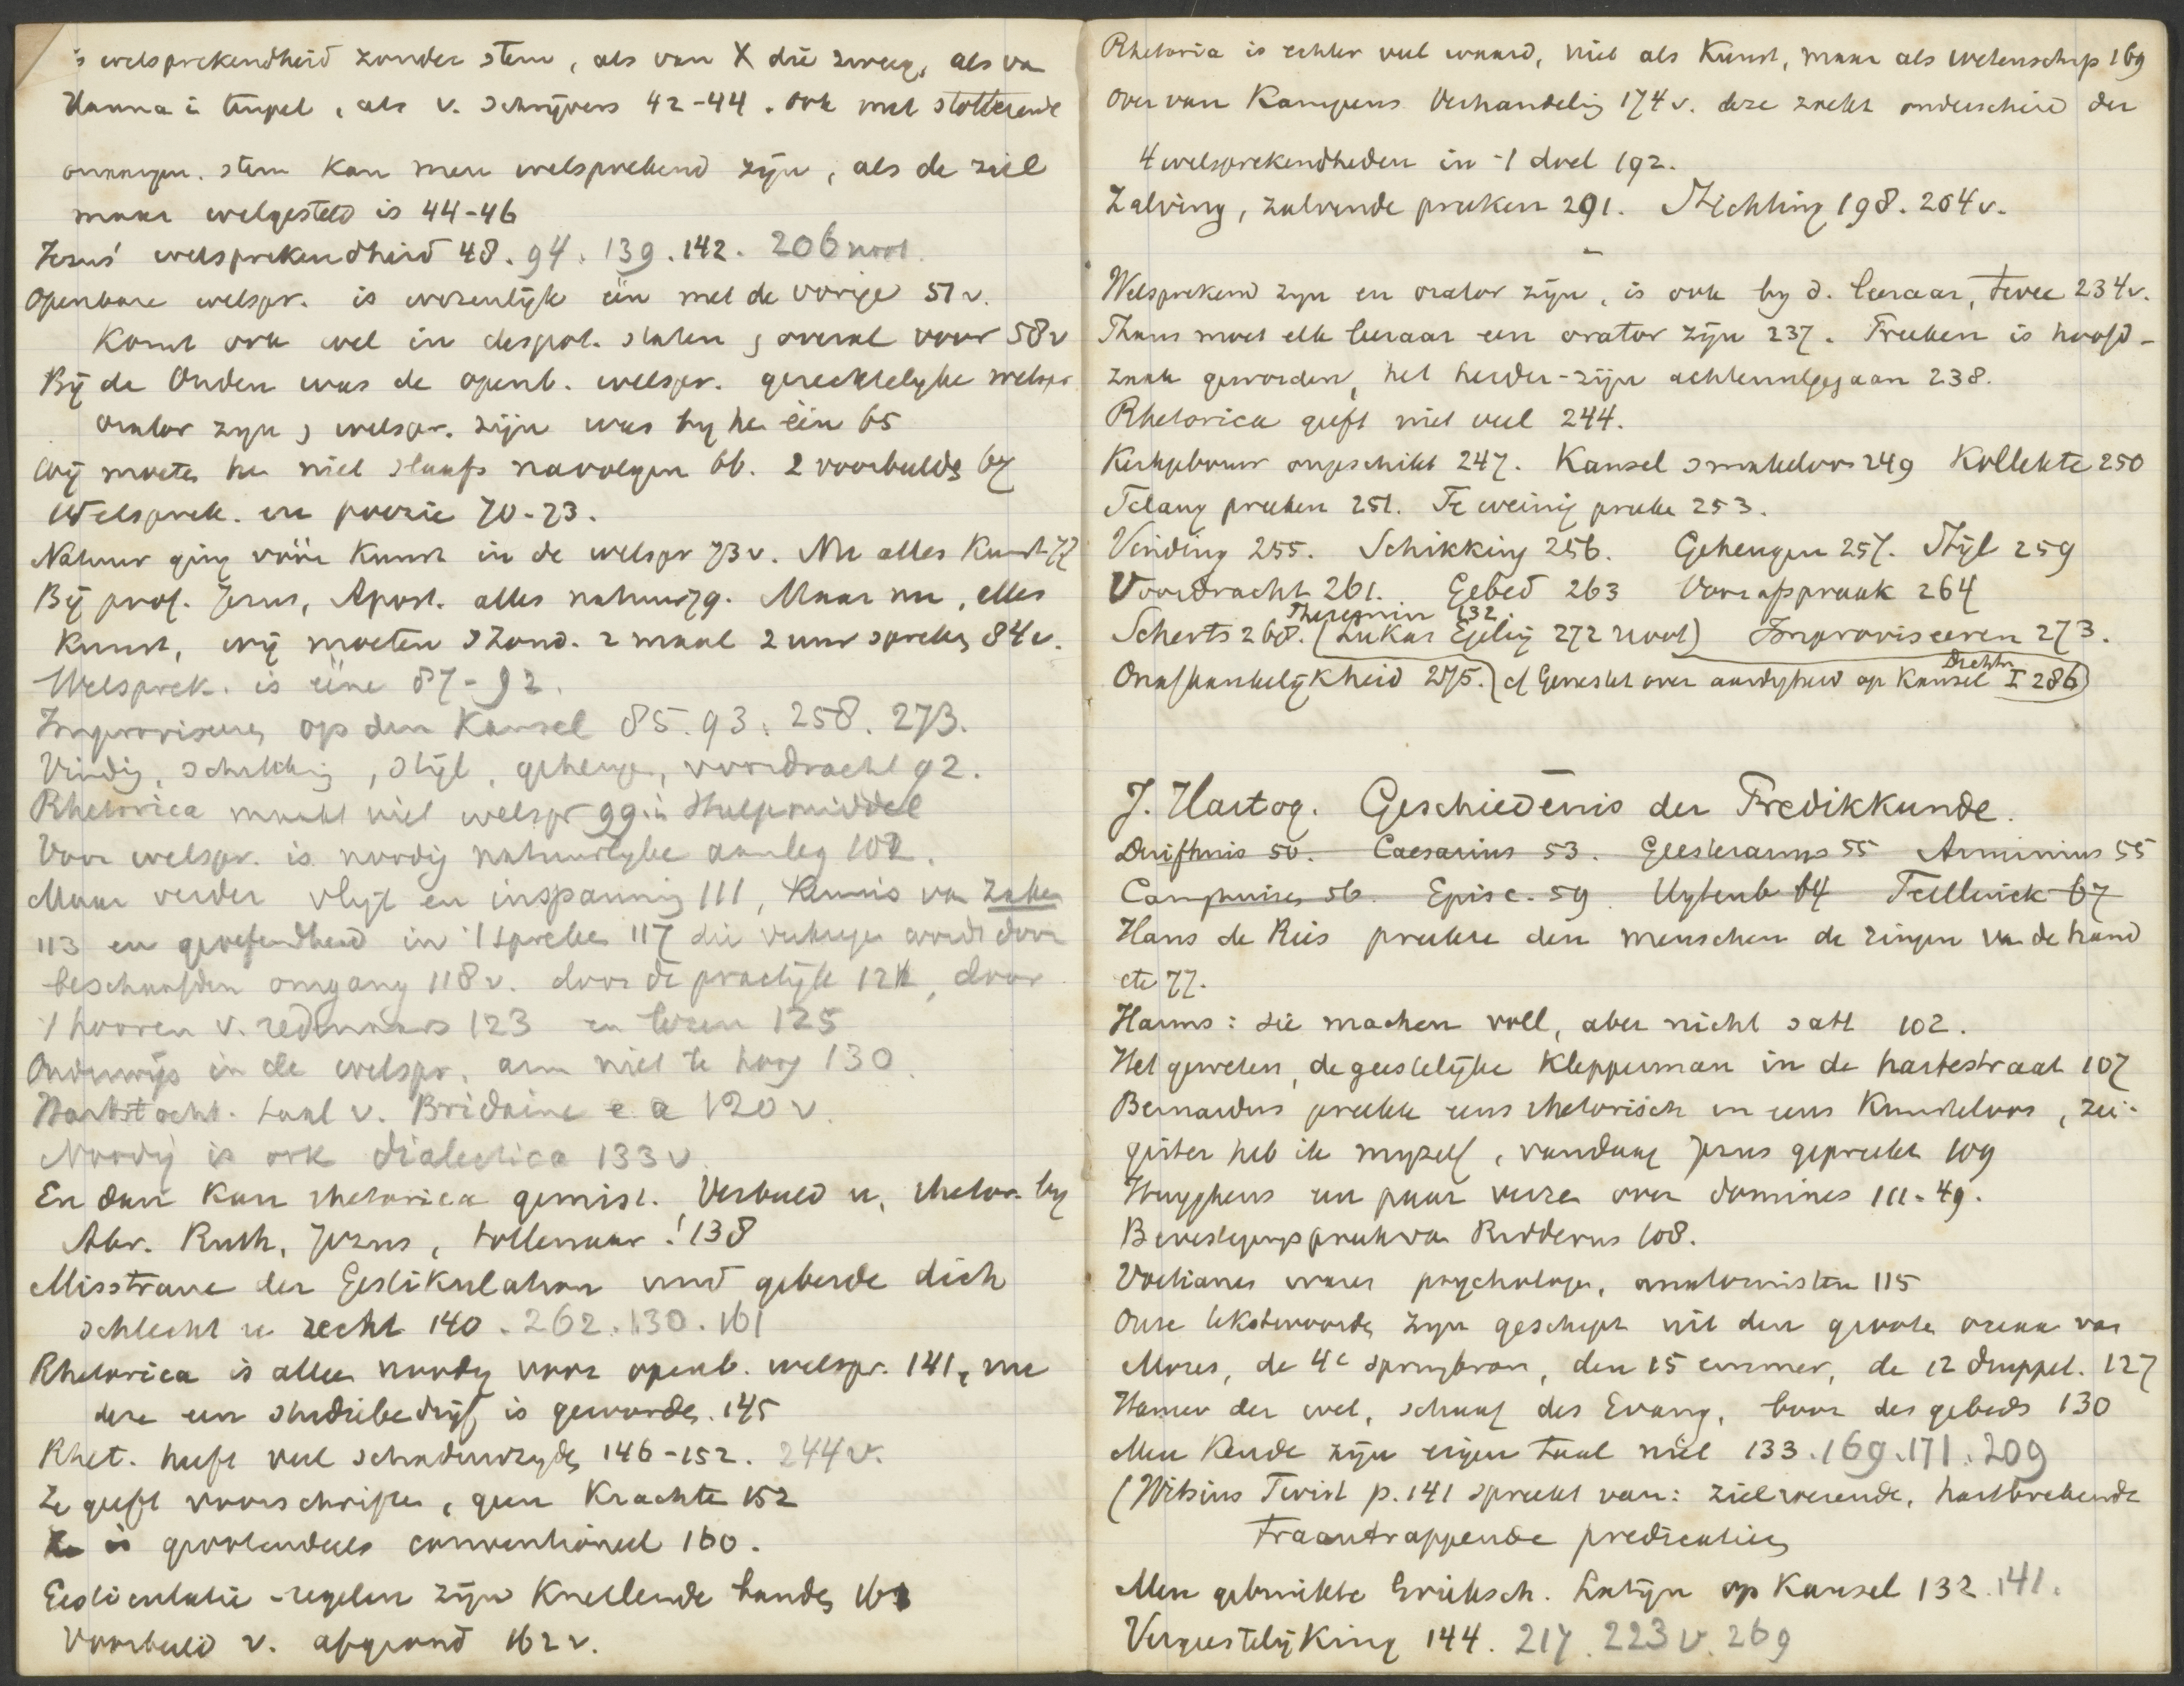 is welsprekendheid zonder stem, als van X die zweeg, als va
Hanna i tempel, als v. schrijvers 42-44. ook met stotterende
onaangen. stem kan men welsprekend zijn, als de ziel
maar welgesteld is 44-46
Jezus' welsprekendheid 48. 94. 139. 142. 206 noot.
Openbare welspr. is wezenlijk één met de vorige 57 v.
Komt ook wel in despot. staten, overal voor 58 v
Bij de Ouden was de openb. welspr. gerechtelyke welspr.
orator zyn, welspr. zijn was by he één 65
Wij moete he niet slaafs navolgen 66. 2 voorbeelde 67
Welsprek. en poezie 70-73.
Natuur ging vóór Kunst in de welspr 73 v. Nu alles Kunst 77
Bij prof. Jezus, Apost. alles natuur 79. Maar nu, alles
Kunst, wij moeten 's Zond. 2 maal 2 uur spreke 84 v.
Welsprek. is ééne 87-92.
Improviseere op den Kansel 85. 93. 258. 273.
Vindig, schikking, stijl, geheuge, voordracht 92.
Rhetorica maakt niet welspr 99. is Hulpmiddel
Voor welspr. is noodig natuurlyke aanleg 102.
Maar verder vlijt en inspanning 111, Kennis va zake
113 en geoefendheid in 't spreke 117 die verkrege wordt door
beschaafden omgang 118 v. door de practijk 121, door
't hooren v. redenaars 123 en lezen 125
Onderwijs in de welspr. am niet te hoog 130.
Hartstocht. taal v. Bridaine e a 120 v.
Noodig is ook dialectica 133 v.
En dan kan rhetorica gemist. Verbeeld u, rhetor. by
Abr. Ruth, Jezus, tollenaar! 138
Misstraue der Gestikulation und geberde dich
schlecht u recht 140. 262. 130. 161
Rhetorica is allee noodig voor openb. welspr. 141, nu
deze een studiebedrijf is geworde. 145
Rhet. heeft veel schaduwzyde 146-152. 244 v.
Ze geeft voorschrifte, geen Krachte 152
Ze is grootendeels conventioneel 160.
Gesticulatie-regelen zijn Knellende bande 161
Voorbeeld v. afgrond 162 v.
Rhetorica is echter veel waard, niet als Kunst, maar als wetenschap 169
Over van Kampens Verhandelig 174 v. deze zoekt onderscheid der
4 welsprekendheden in 't doel 192.
Zalving, zalvende preeken 291. Stichting 198. 204 v.
Welsprekend zyn en orator zijn, is ook by d. leeraar, twee 234 v.
Thans moet elk leeraar een orator zijn 237. Preeken is hoofd-
zaak geworden, het herder-zijn achteruitgegaan 238.
Rhetorica geeft niet veel 244.
Kerkgebouw ongeschikt 247. Kansel smakeloos 249 Kollekte 250
Te lang preeken 251. Te weinig preeke 253.
Vinding 255. Schikking 256. Geheugen 257. Stijl 259
Voordracht 261. Gebed 263 Voorafspraak 264
Theremin 132.
Scherts 268. (Lukas Egeling 272 noot) Improviseeren 273.
Onafhankelijkheid 275. (cf Genestet over aardigheid op Kansel Dichtn I 286)
J. Hartog. Geschiedenis der Predikkunde.
Duifhuis 50. Caesarius 53. Geesteranus 55 Arminius 55
Camphuise 56. Episc. 59 Uytenb 64 Tellinck 67
Hans de Ries preekte den menschen de ringen va de hand
etc 77.
Harms: sie machen voll, aber nicht satt 102.
Het geweten, de geestelijke Klepperman in de hartestraat 107
Bernardus preekte eens rhetorisch en eens Kunsteloos, zei:
gister heb ik myzelf, vandaag Jezus gepreekt 109
Huyghens een paar verze over domines 111. 49.
Bevestigingspreek va Ridderus 108.
Voetianes ware psychologe, anatomisten 115
Onze tekstwoorde zyn geschept uit den groote oceaan van
Mozes, de 4e springbron, den 15 emmer, de 12 druppel. 127
Hamer der wet, schaaf des Evang, boor des gebeds 130
Men kende zijn eigen taal niet 133. 169. 171. 209
(Witsius Twist p. 141 spreekt van: zielroerende, hartbrekende
traantrappende predicatiën
Men gebruikte Grieksch. Latijn op Kansel 132. 141.
Vergeestelijking 144. 217. 223 v. 269